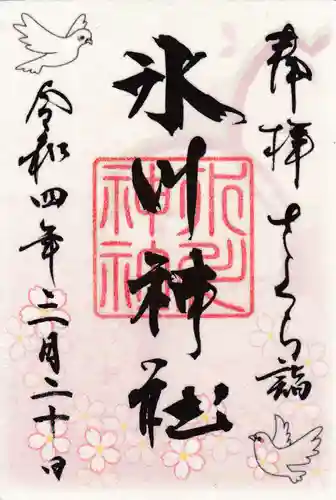 奉拝 さくら詣
氷川神社
氷川神社
令和四年三月二十日